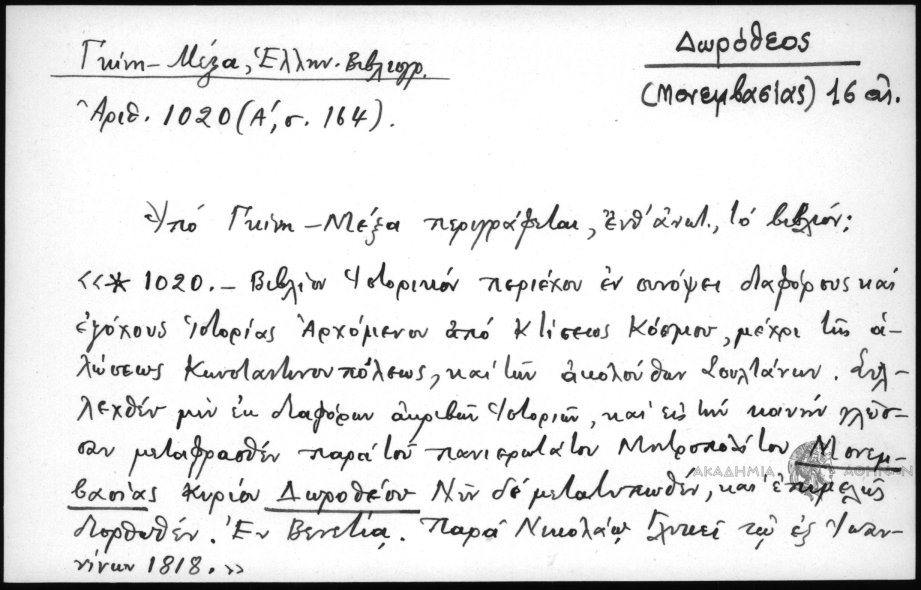 Γκίνη-Μέξα, Ἑλλην. Βιβλιογρ.
Δωρόθεος
(Μονεμβασίας) 16 αἰ.
Ἀριθ. 1020 (Α΄, σ. 164).
Ὑπό Γκίνη-Μέξα περιγράφεται, ἔνθ' ἀνωτ., τό βιβλίον:
«* 1020. – Βιβλίον Ἱστορικόν περιέχον ἐν συνόψει διαφόρους καί
ἐξόχους Ἱστορίας Ἀρχόμενον ἀπό Κτίσεως Κόσμου, μέχρι τῆς ἁ-
λώσεως Κωνσταντινουπόλεως, καί τῶν ἀκολούθων Σουλτάνων. Συλ-
λεχθέν μέν ἐκ διαφόρων ἀκριβῶν Ἱστοριῶν, καί εἰς τήν κοινήν γλῶσ-
σαν μεταφρασθέν παρά τοῦ πανιερωτάτου Μητροπολίτου Μονεμ-
βασίας Κυρίου Δωροθέου Νῦν δέ μετατυπωθέν, καί ἐπιμελῶς
διορθωθέν. Ἐν Βενετίᾳ. Παρά Νικολάῳ Γλυκεῖ τῷ ἐξ Ἰωαν-
νίνων 1818.»
ΑΚΑΔΗΜΙΑ ΑΘΗΝΩΝ